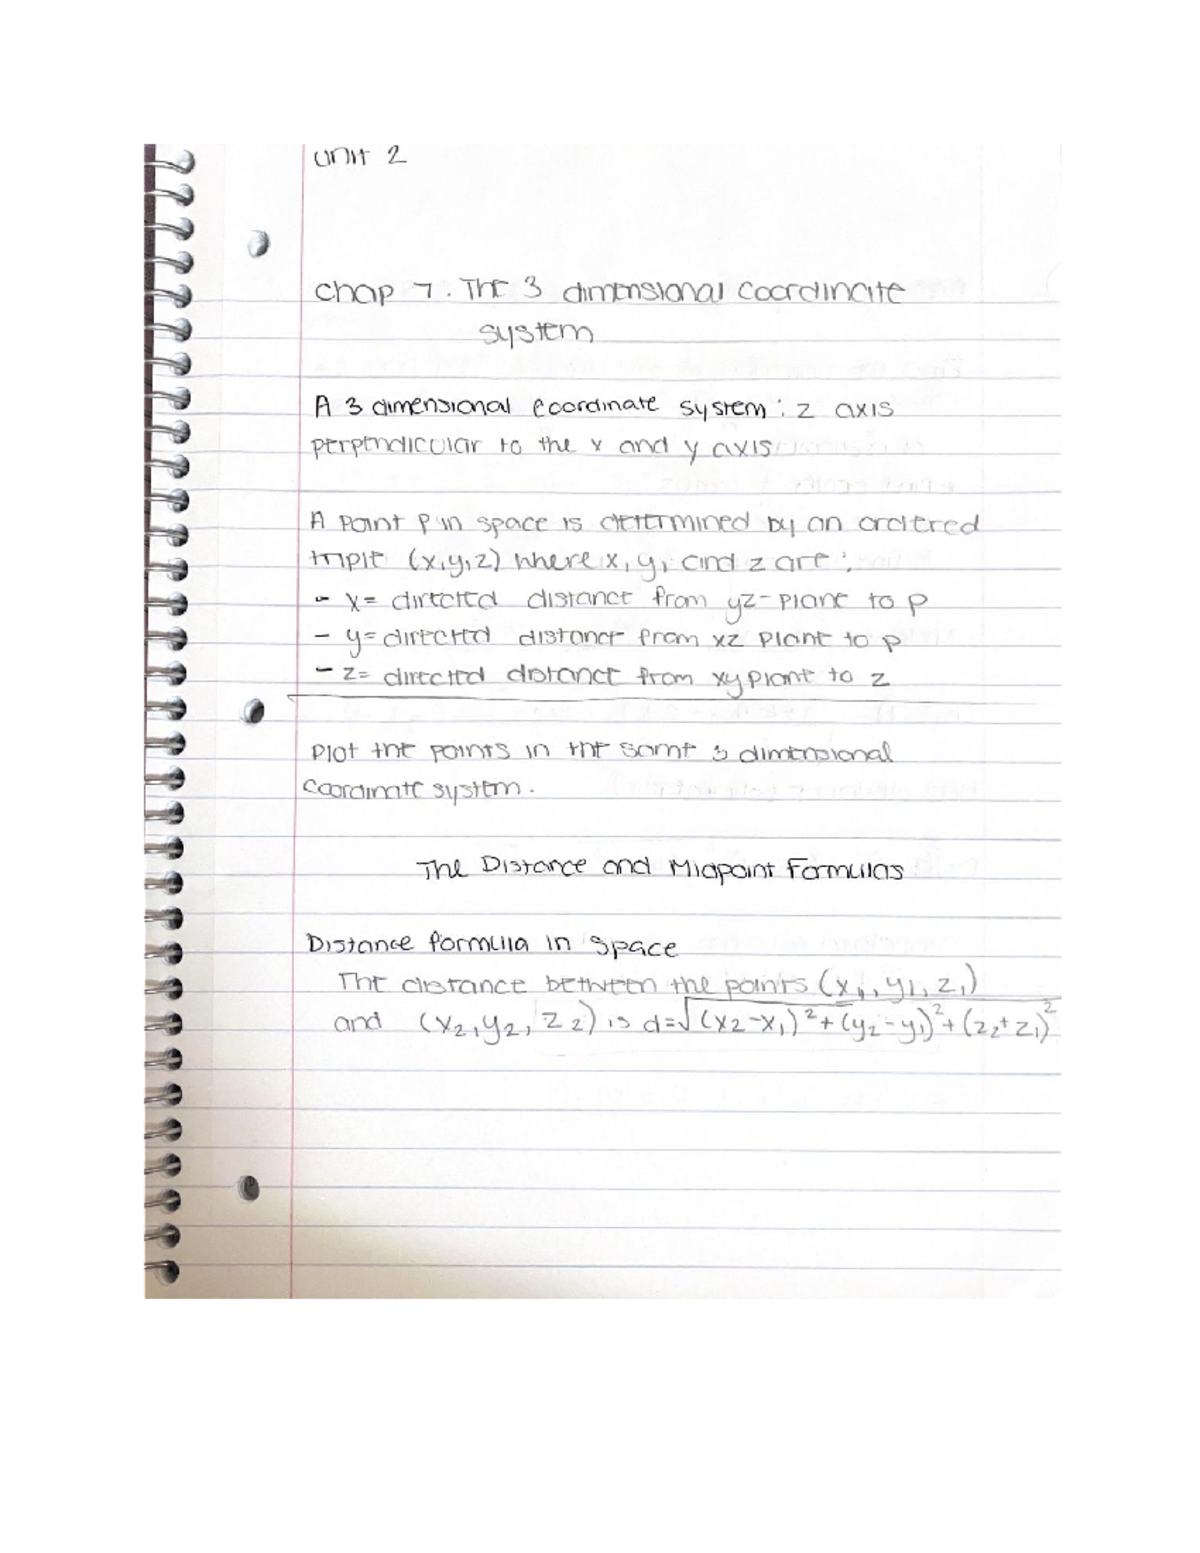 Unit 2
Chap 7. The 3 dimensional Coordinate
system
A 3 dimensional coordinate system: z axis
perpendicular to the x and y axis
A point P in space is determined by an ordered
triple (x,y,z) where x, y, and z are:
- x= directed distance from yz-plane to p
- y= directed distance from xz plane to p
- z= directed distance from xy plane to z
Plot the points in the same 3 dimensional
coordinate system.
The Distance and Midpoint Formulas
Distance formula in space
The distance between the points (x₁, y1, z₁)
and (x₂, y₂, z₂) is d=√(x₂-x₁)²+(y₂-y₁)²+(z₂+z₁)²